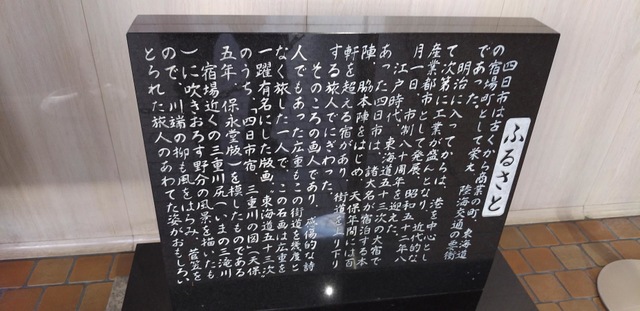 ふるさと
四日市は古くから商業の町、東海道
の宿場町として栄え、陸海交通の要衝
であった。
明治に入ってからは、港を中心とし
て次第に工業が盛んとなり、近代的な
産業都市として発展、昭和五十二年八
月一日、市制八十周年を迎えた。
江戸時代、東海道五十三次の大宿で
あった四日市は、諸大名が宿泊する本
陣、脇本陣をはじめ、天保年間には百
軒を超える宿があり、街道を上り下り
する旅人でにぎわった。
そのころの画人であり、感傷的な詩
人でもあった広重もこの街道を幾度と
なく旅した一人で、この石画は広重を
一躍有名にした版画、東海道五十三次
のうち「四日市宿 三重川の図」(天保
五年 保永堂版)を模したものである
宿場近くの三重川尻(いまの三滝川
)に吹きおろす野分の風景を描いたも
ので、川端の柳も風をはらみ、菅笠を
とられた旅人のあわてた姿がおもしろい